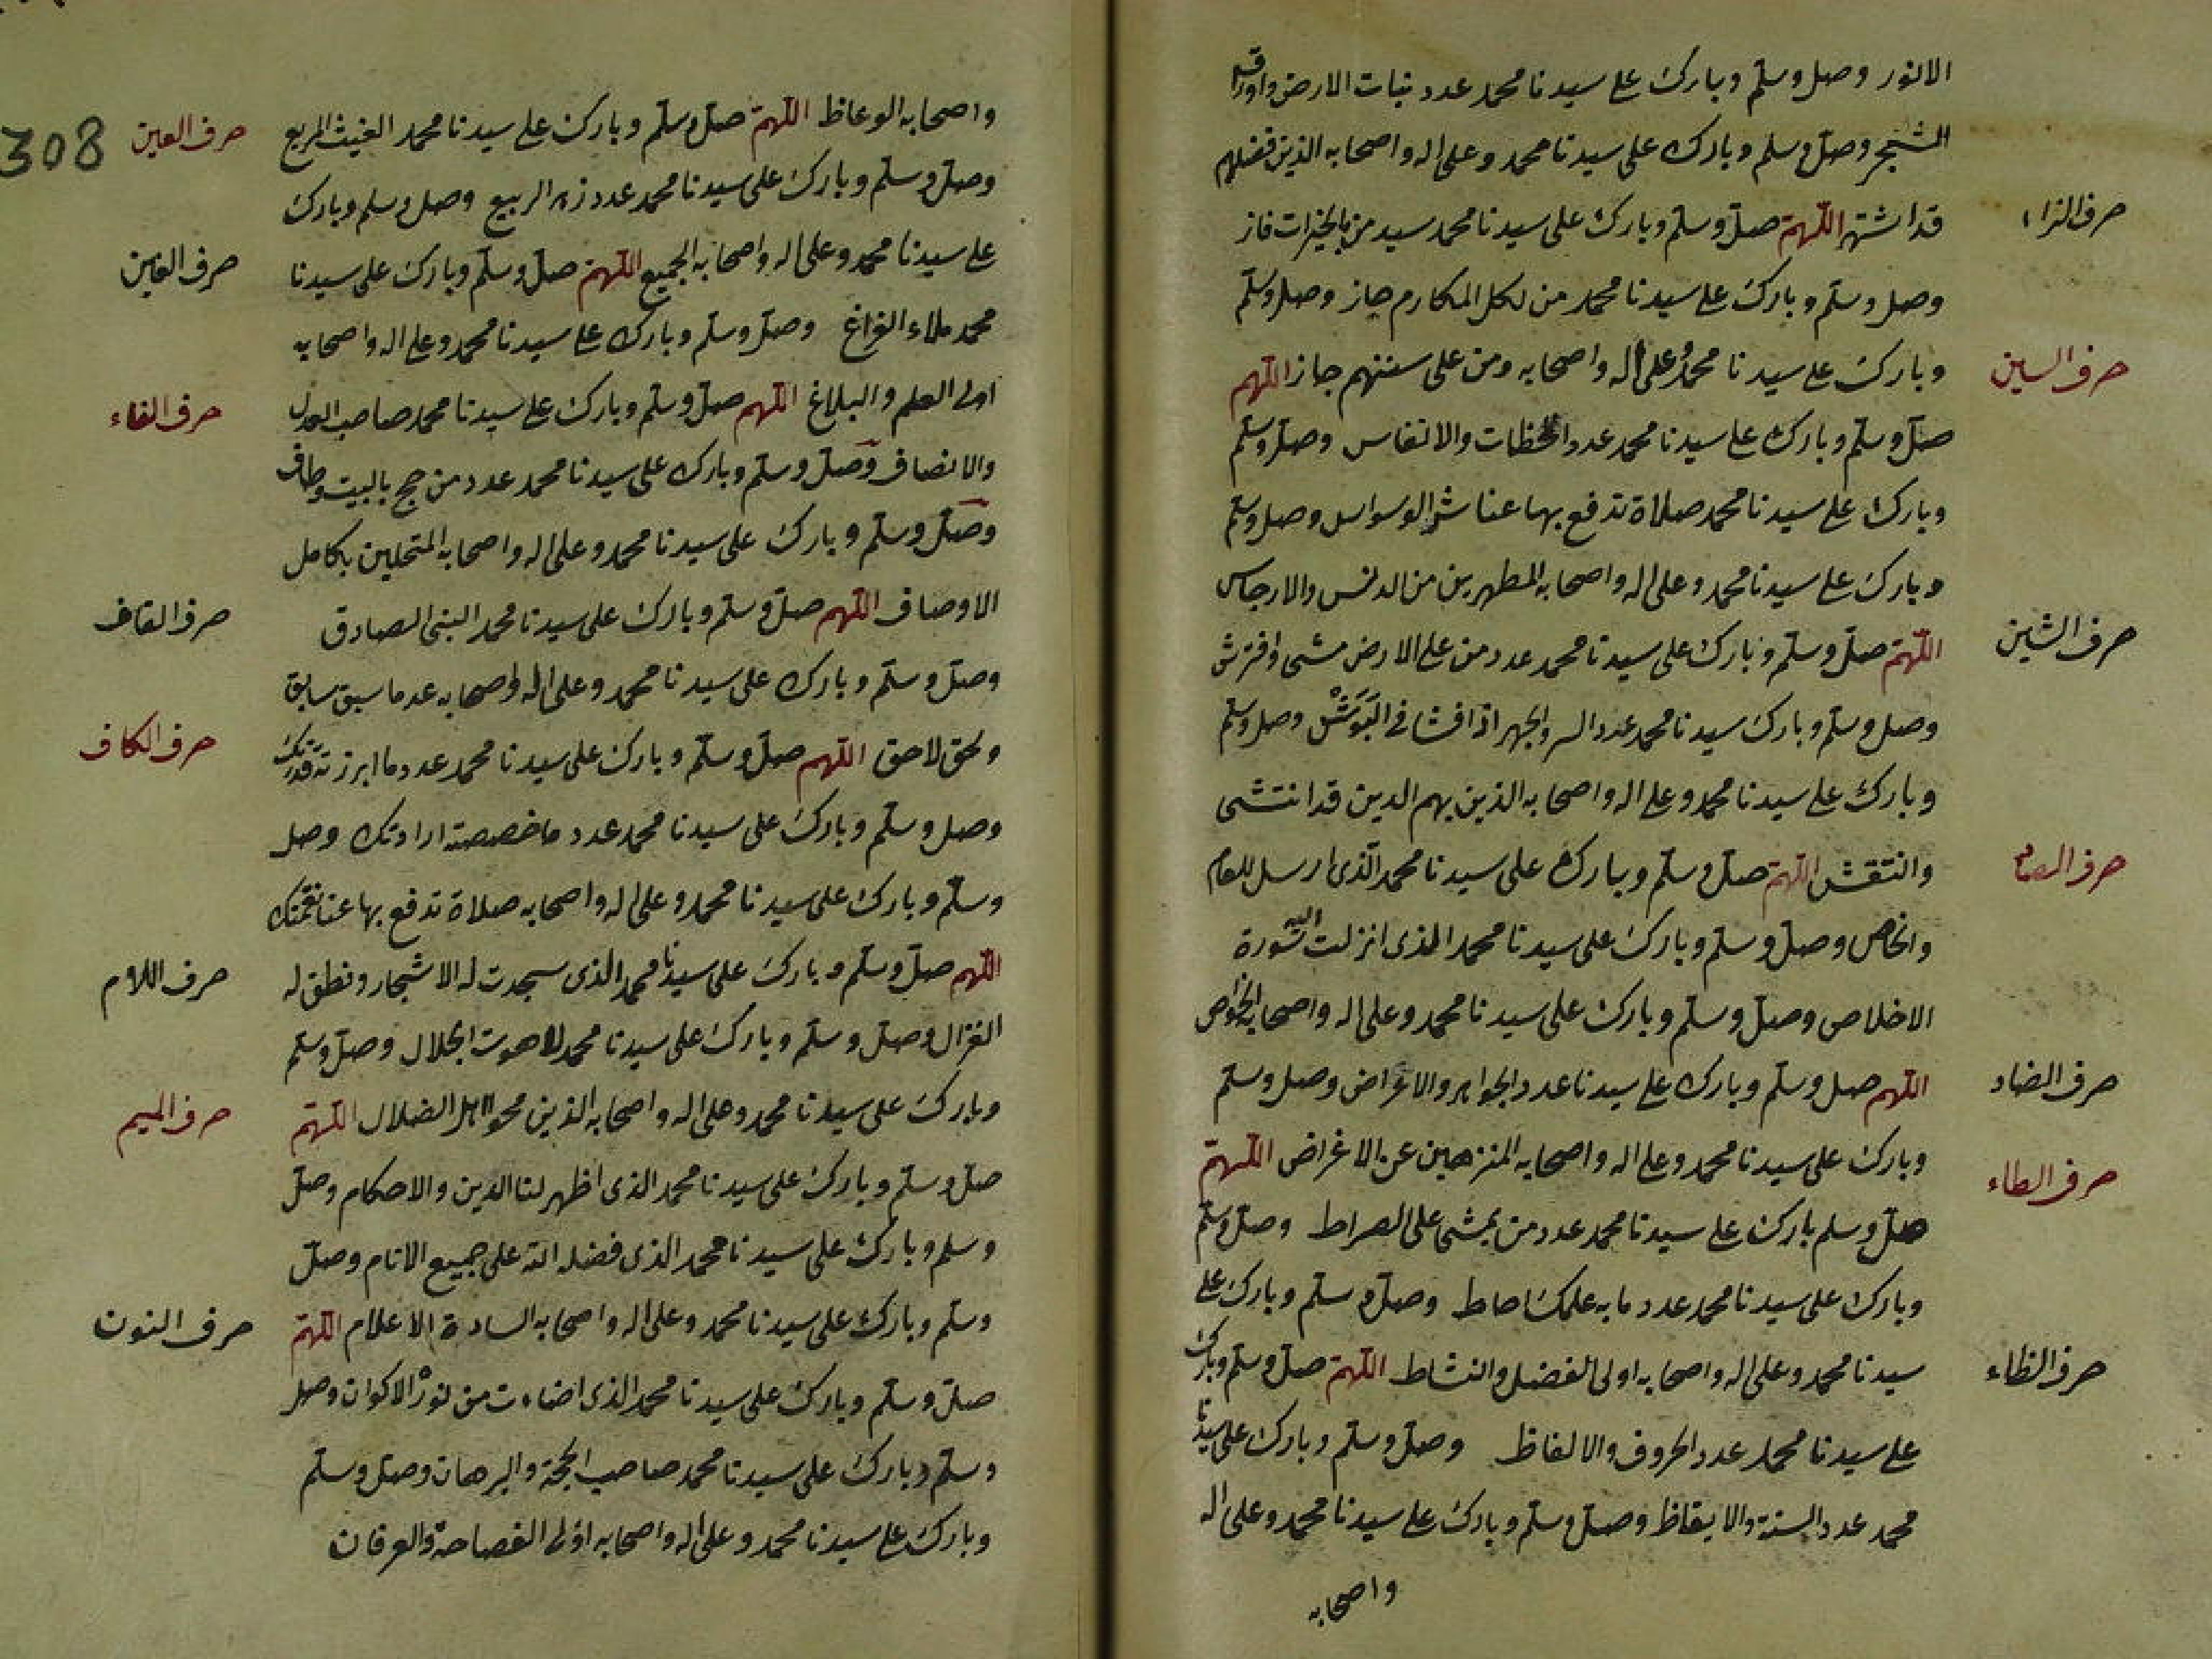 الانور وصل وسلم وبارك على سيدنا محمد عدد نبات الارض واوراق
الشجر وصل وسلم وبارك على سيدنا محمد وعلى اله واصحابه الذين فضلهم
حرف الزاء
قد اشتهر اللهم صل وسلم وبارك على سيدنا محمد سيد من بالخيرات فاز
وصل وسلم وبارك على سيدنا محمد من لكل المكارم حاز وصل وسلم
حرف السين
وبارك على سيدنا محمد وعلى اله واصحابه ومن على سننهم جاز اللهم
صل وسلم وبارك على سيدنا محمد عدد اللحظات والانفاس وصل وسلم
وبارك على سيدنا محمد صلاة تدفع بها عنا شر الوسواس وصل وسلم
وبارك على سيدنا محمد وعلى اله واصحابه المطهرين من الدنس والارجاس
حرف الشين
اللهم صل وسلم وبارك على سيدنا محمد عدد من على الارض مشى وافترش
وصل وسلم وبارك سيدنا محمد عدد السر والجهر اذا فشا في وصل وسلم
وبارك على سيدنا محمد وعلى اله واصحابه الذين بهم الدين قد انتشى
حرف الصاد
وانتقش اللهم صل وسلم وبارك على سيدنا محمد الذى ارسل للعام
والخاص وصل وسلم وبارك على سيدنا محمد الذى انزلت اليه سورة
الاخلاص وصل وسلم وبارك على سيدنا محمد وعلى اله واصحابه الخواص
حرف الضاد
اللهم صل وسلم وبارك على سيدنا عدد الجواهر والاعراض وصل وسلم
وبارك على سيدنا محمد وعلى اله واصحابه المنزهين عن الاغراض اللهم
حرف الطاء
صل وسلم بارك على سيدنا محمد عدد من يمشى على الصراط وصل وسلم
وبارك على سيدنا محمد عدد ما به علمك احاط وصل وسلم وبارك على
حرف الظاء
سيدنا محمد وعلى اله واصحابه اولى الفضل والنشاط اللهم صل وسلم وبارك
على سيدنا محمد عدد الحروف والالفاظ وصل وسلم وبارك على سيدنا
محمد عدد السنة والايقاظ وصل وسلم وبارك على سيدنا محمد وعلى اله
واصحابه
308
حرف العين
واصحابه الوعاظ اللهم صل وسلم وبارك على سيدنا محمد الغيث المريع
وصل وسلم وبارك على سيدنا محمد عدد زهر الربيع وصل وسلم وبارك
حرف الغين
على سيدنا محمد وعلى اله واصحابه الجميع اللهم صل وسلم وبارك على سيدنا
محمد ملاء الفراغ وصل وسلم وبارك على سيدنا محمد وعلى اله واصحابه
حرف الفاء
اولى العلم والبلاغ اللهم صل وسلم وبارك على سيدنا محمد صاحب العدل
والانصاف وصل وسلم وبارك على سيدنا محمد عدد من حج بالبيت وطاف
وصل وسلم وبارك على سيدنا محمد وعلى اله واصحابه المتحلين بكامل
حرف القاف
الاوصاف اللهم صل وسلم وبارك على سيدنا محمد النبى الصادق
وصل وسلم وبارك على سيدنا محمد وعلى اله واصحابه عد ما سبق سابق
حرف الكاف
ولحق لاحق اللهم صل وسلم وبارك على سيدنا محمد عدد ما ابرزته قدرتك
وصل وسلم وبارك على سيدنا محمد عدد ما خصصته ارادتك وصل
وسلم وبارك على سيدنا محمد وعلى اله واصحابه صلاة تدفع بها عنا نقمتك
حرف اللام
اللهم صل وسلم وبارك على سيدنا محمد الذى سجدت له الاشجار ونطق له
الغزال وصل وسلم وبارك على سيدنا محمد لاهوت الجلال وصل وسلم
حرف الميم
وبارك على سيدنا محمد وعلى اله واصحابه الذين محوا اهل الضلال اللهم
صل وسلم وبارك على سيدنا محمد الذى اظهر لنا الدين والاحكام وصل
وسلم وبارك على سيدنا محمد الذى فضله الله على جميع الانام وصل
حرف النون
وسلم وبارك على سيدنا محمد وعلى اله واصحابه السادة الاعلام اللهم
صل وسلم وبارك على سيدنا محمد الذى اضاءت من نوره الاكوان وصل
وسلم وبارك على سيدنا محمد صاحب الحجة والبرهان وصل وسلم
وبارك على سيدنا محمد وعلى اله واصحابه اولى الفصاحة والعرفان